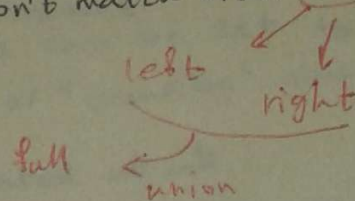 on't match
left
right
full
union